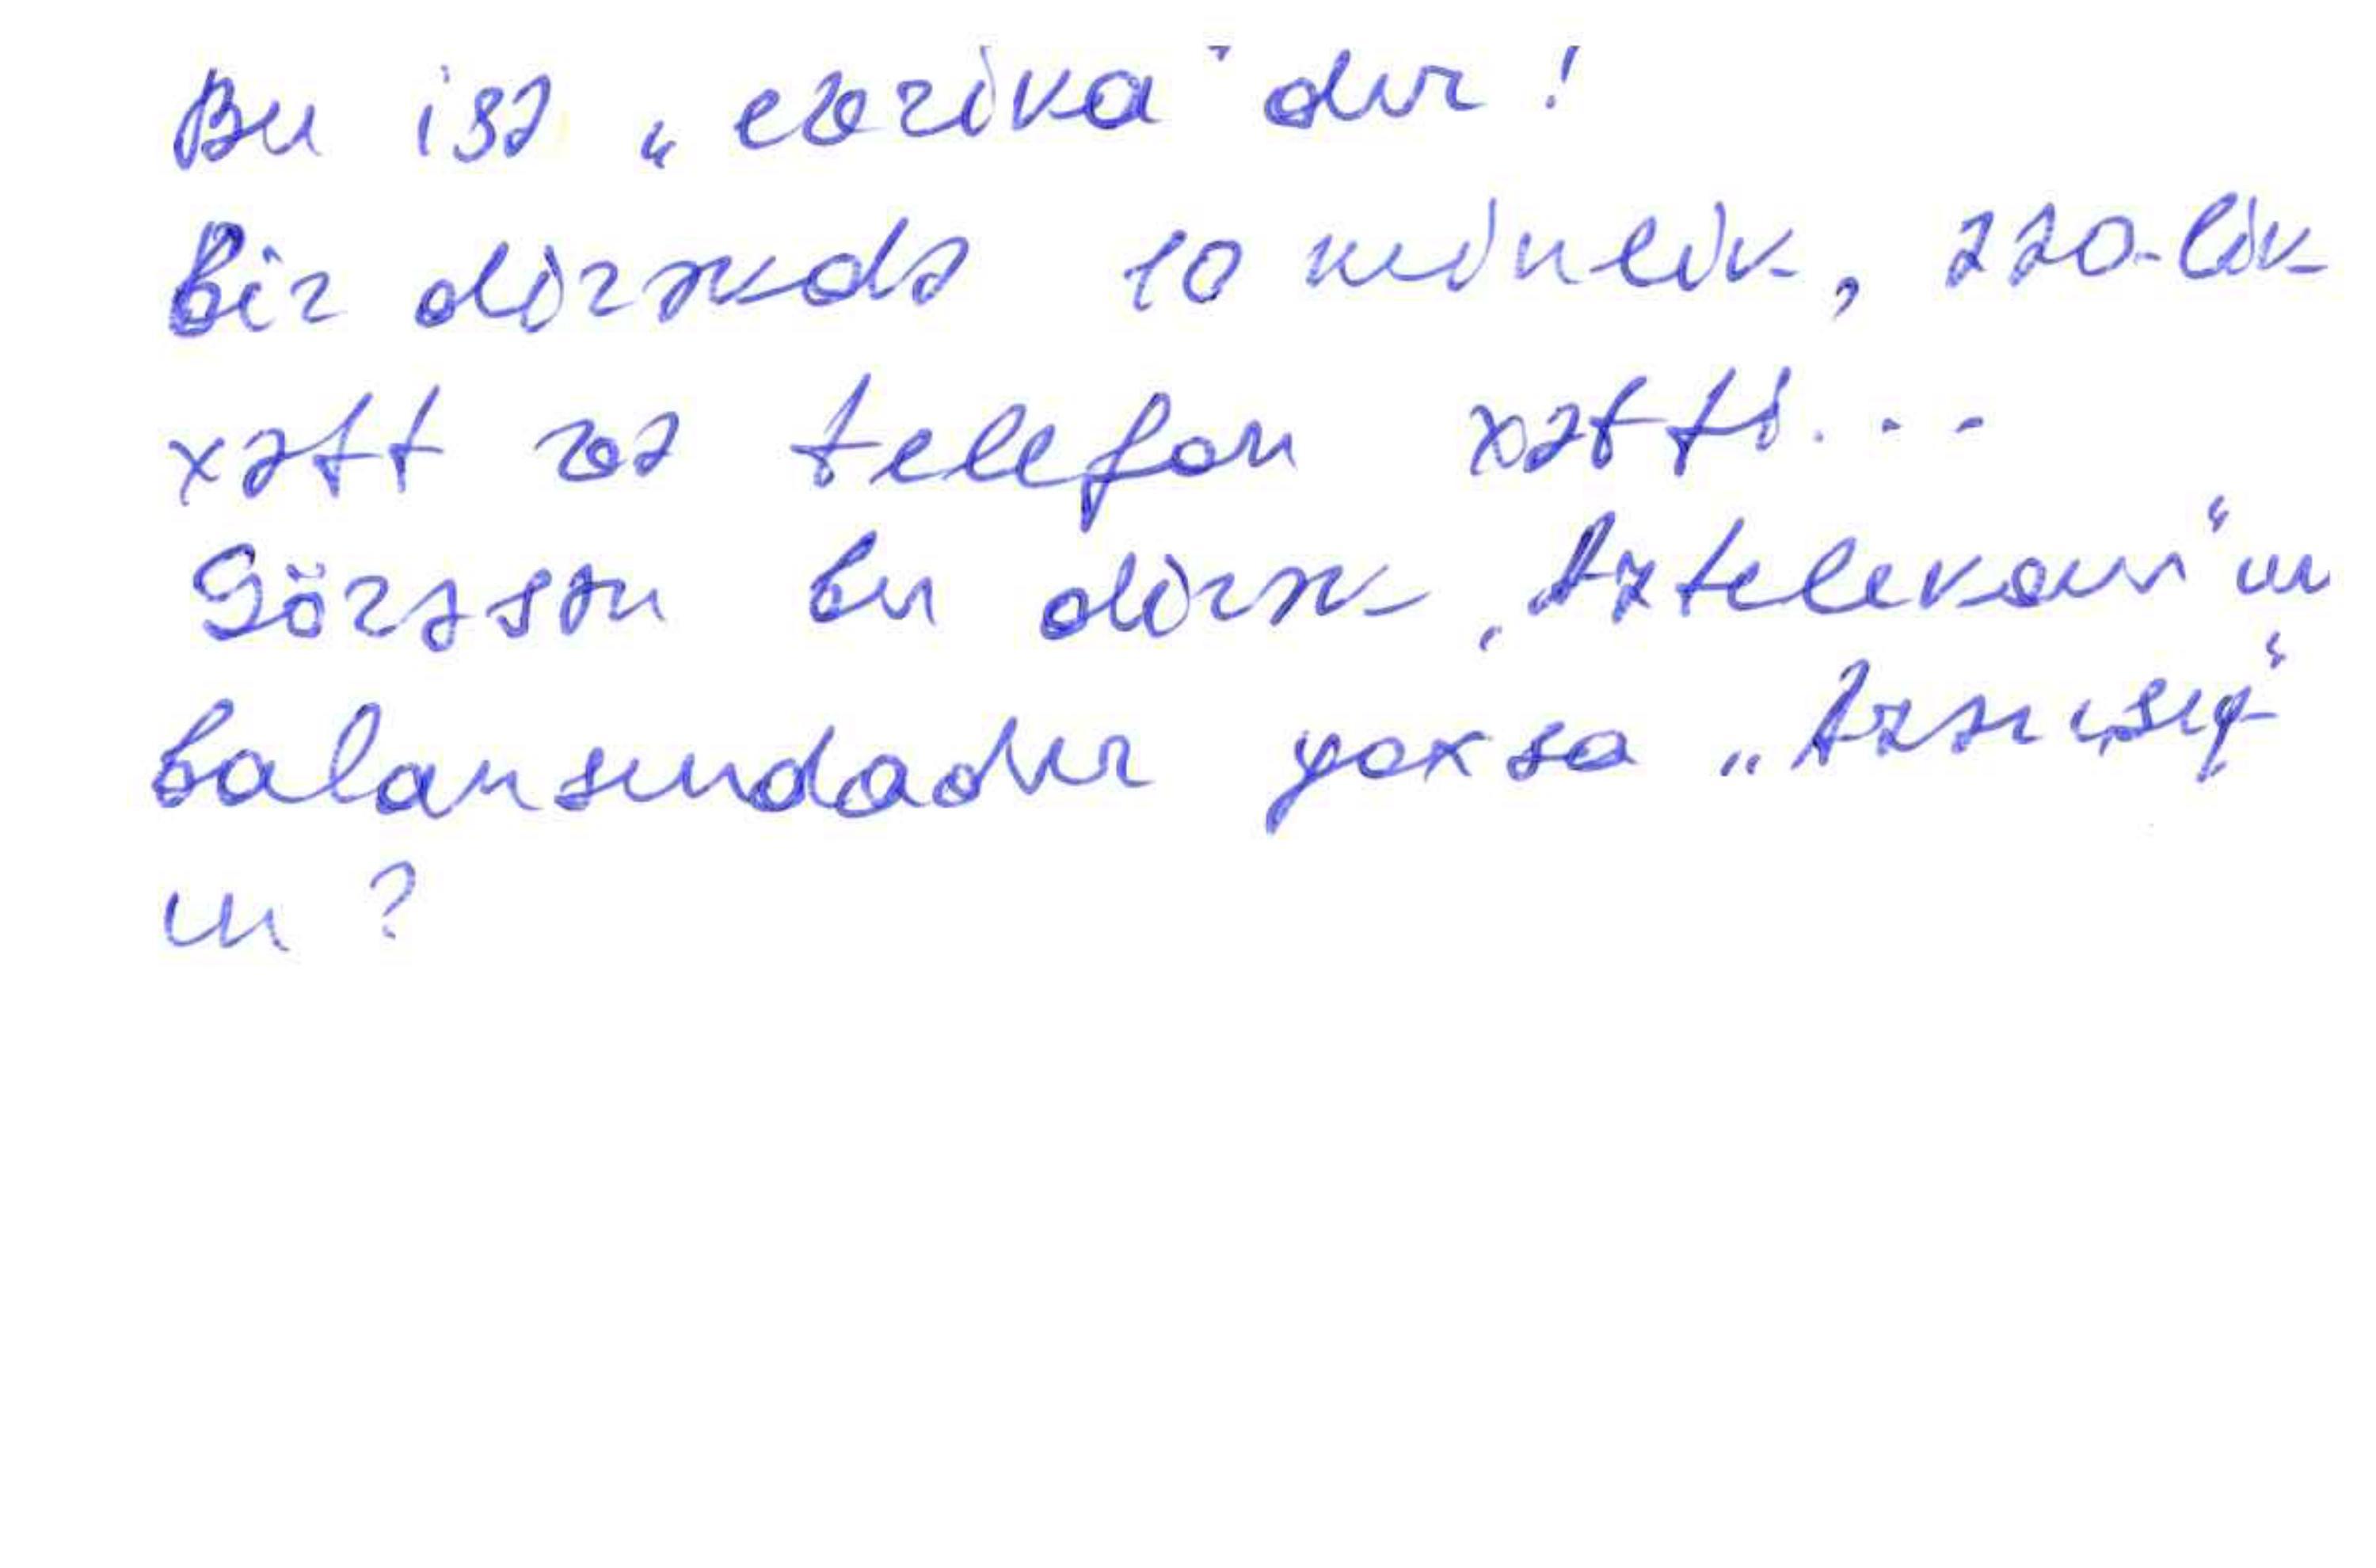 Bu isə „evrika" dır!
Bir dirəkdə 10 minlik, 220-lik
xətt və telefon xətti...
Görəsən bu dirək „Aztelekom"un
balansındadır yoxsa „Azərışıq"
ın?